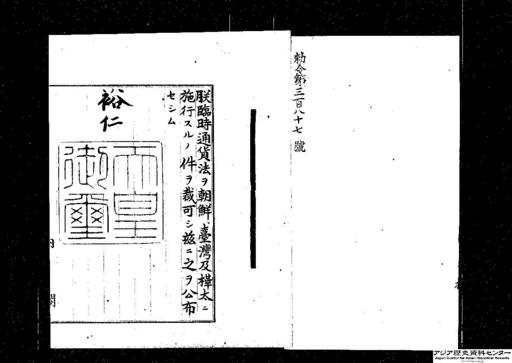 勅令第三百八十七號
朕臨時通貨法ヲ朝鮮、臺灣及樺太ニ
施行スルノ件ヲ裁可シ茲ニ之ヲ公布
セシム
裕仁
天皇
御璽
内
閣
アジア歴史資料センター
Japan Center for Asian Historical Records